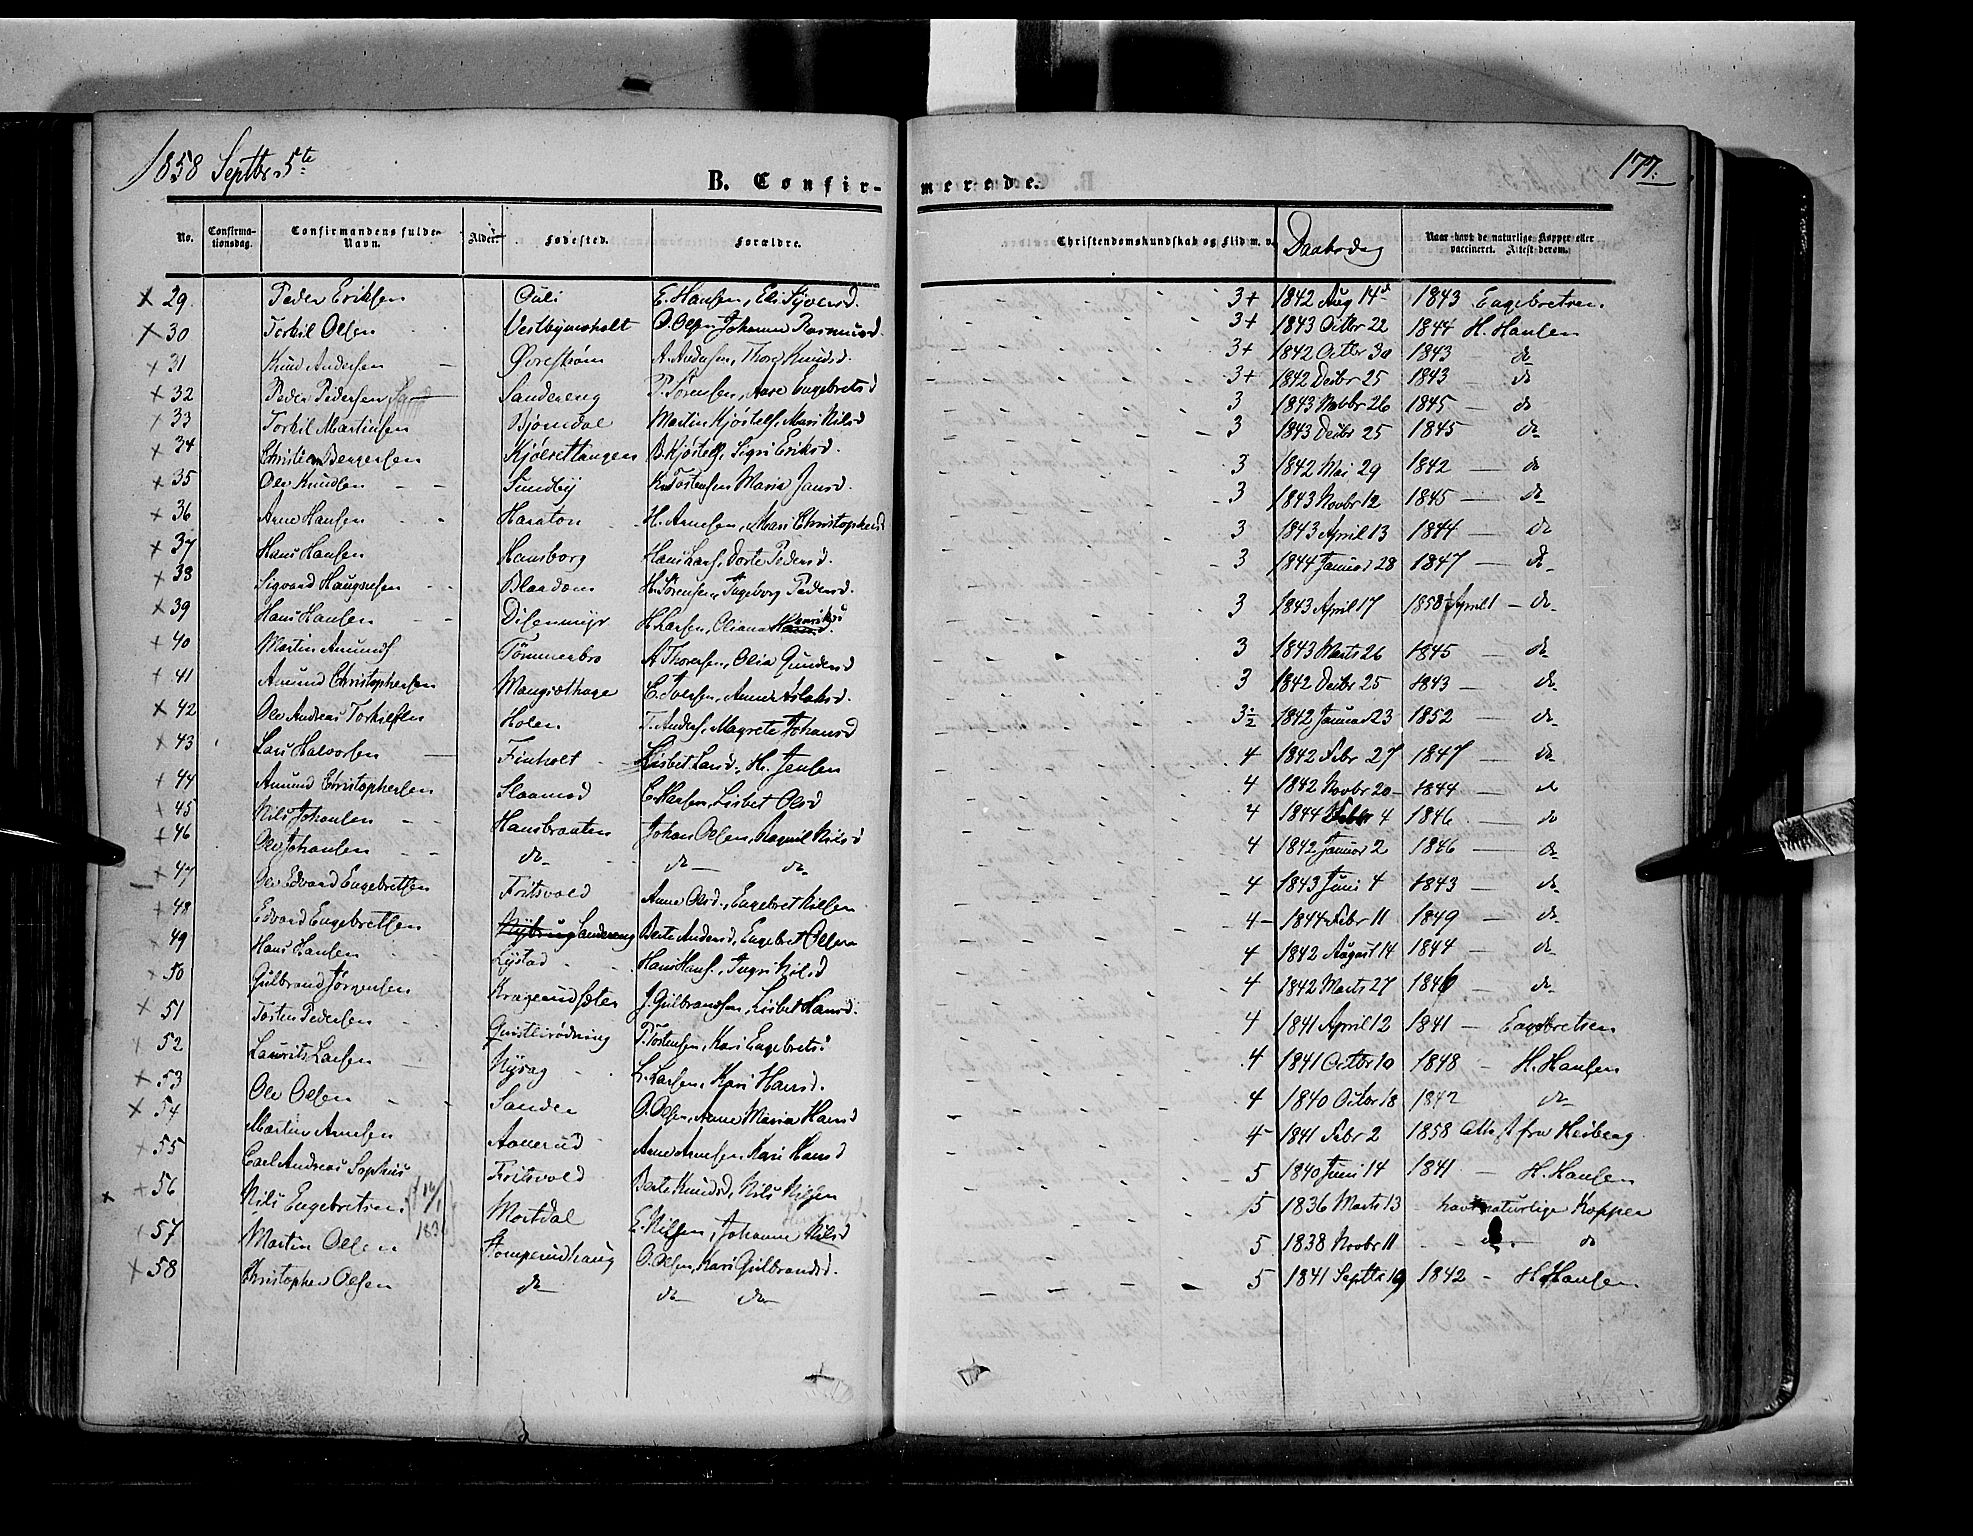 1858 Septbr 5te
177.
B. Confirmerede.
No. Confirmationsdag. Confirmandens fulde Navn. Alder. Fødested. Forældre. Christendomskundskab og Flid m. v. Daabsdag Naar havt de naturlige Kopper eller vaccineret. Attest derom.
29 Peder Eriksen Ouli E. Hansen, Eli Syversd. 3+ 1842 Aug 14d 1843 Engebretsen.
30 Torkil Olsen Vestbymoholt O. Olsen Johanne Rasmusd. 3+ 1843 Octbr 22 1844 H. Hansen
31 Knud Andersen A. Andersen, Knudsd. 3+ 1842 Octbr 30 1843 do
32 Peder Pedersen Sandereng P. Sørensen, Engebretsd 3+ 1842 Decbr 25 1843 do
33 Torkil Martinsen Bjørndal Martin Kjøstels, Mari Nilsd 3 1843 Novbr 26 1845 do
34 Christian Bergersen B. Kjøstels, Sigri Eriksd. 3 1843 Decbr 25 1845 do
35 Ole Knudsen Sundby K. Tostensen Maria Jansd. 3 1842 Mai 29 1842 do
36 Arne Hansen Haraton H. Arnesen, Mari Christophersd 3 1843 Novbr 12 1845 do
37 Hans Hansen Hansborg Hans Lars, Dorte Pedersd. 3 1843 April 13 1844 do
38 Sigvard Blaadom H. Sørensen, Ingeborg Pedersd. 3 1844 Januar 28 1847 do
39 Hans Hansen Disenmyr H. Larsen, Oliana Henriksd 3 1843 April 17 1858 April 1 do
40 Martin Amunds Tømmerbro A Thoresen, Olia Gundersd 3 1843 Marts 26 1845 do
41 Amund Christophersen C. Iversen, Anne Aslaksd. 3 1842 Decbr 25 1843 do
42 Ole Andreas Torkilsen Holen T. Anders, Magrete Johansd 3½ 1842 Januar 23 1852 do
43 Lars Halvorsen Finholt Lisbet Larsd, H. Jensen 4 1842 Febr 27 1847 do
44 Amund Christophersen C. Larsen, Lisbet Olsd 4 1842 Novbr 20 1844 do
45 Nils Johansen Hansbraaten Johan Olsen, Raquil Nilsd 4 1844 Febr 4 1846 do
46 Ole Johansen do do do 4 1842 Januar 2 1846 do
47 Ole Edvard Engebretsen Fritsvold Anne Olsd., Engebret Nilsen 4 1843 Juni 4 1843 do
48 Edvard Engebretsen Sandereng Berte Andersd, Engebret Olsen 4 1844 Febr 11 1849 do
49 Hans Hansen Lystad Hans Hans, Ingri Nilsd 4 1842 August 14 1844 do
50 Gulbrand Jørgensen Kragerudsæter J. Gulbrandsen, Lisbet Hansd. 4 1842 Marts 27 1846 do
51 Tosten Pedersen P. Tostensen, Kari Engebretsd 4 1841 April 12 1841 Engebretsen
52 Laurits Larsen Nysag L. Larsen, Kari Hansd. 4 1841 Octbr 10 1848 H. Hansen
53 Ole Olsen Sander O. Olsen, Anne Maria Hansd 4 1840 Octbr 18 1842 do
54 Martin Arnesen Aanerud Arne Arnesen, Kari Hansd 4 1841 Febr 2 1858 Attest fra Heiberg
55 Carl Andreas Sophus Fritsvold Berte Knudsd, Nils Nilsen 5 1840 Juni 14 1841 H. Hansen
56 Nils Engebretsen 1836 Mordal E. Nilsen, Johanne Nilsd 5 1836 Marts 13 havt naturlige Kopper
57 Martin Olsen Stomperudhaug O. Olsen, Kari Gulbrandsd. 5 1838 Novbr 11 do do
58 Christopher Olsen do do do 5 1841 Septbr 19 1842 H. Hansen